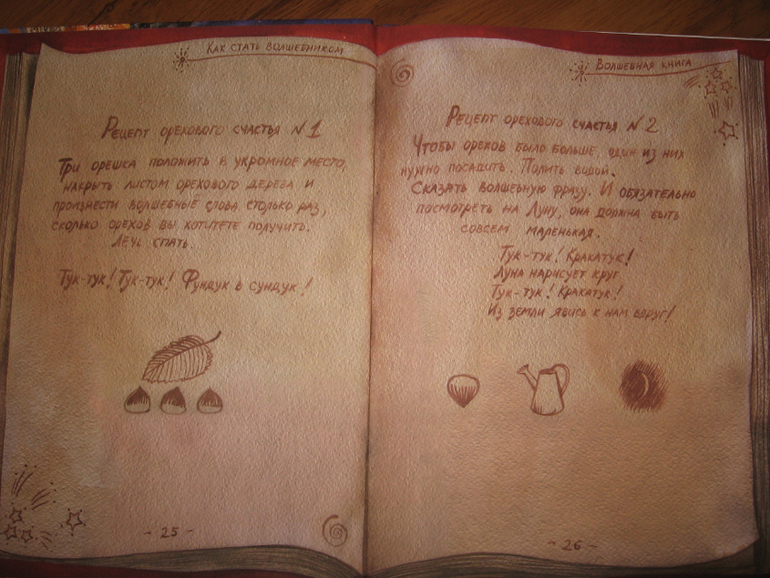 Как стать волшебником
Рецепт орехового счастья №1
Три орешка положить в укромное место,
накрыть листом орехового дерева и
произнести волшебные слова столько раз,
сколько орехов вы хотитете получить.
Лечь спать.
Тук-тук! Тук-тук! Фундук в сундук!
- 25 -
Волшебная книга
Рецепт орехового счастья №2
Чтобы орехов было больше, один из них
нужно посадить. Полить водой.
Сказать волшебную фразу. И обязательно
посмотреть на Луну, она должна быть
совсем маленькая.
Тук-тук! Кракатук!
Луна нарисует круг
Тук-тук! Кракатук!
Из земли явись к нам вдруг!
- 26 -